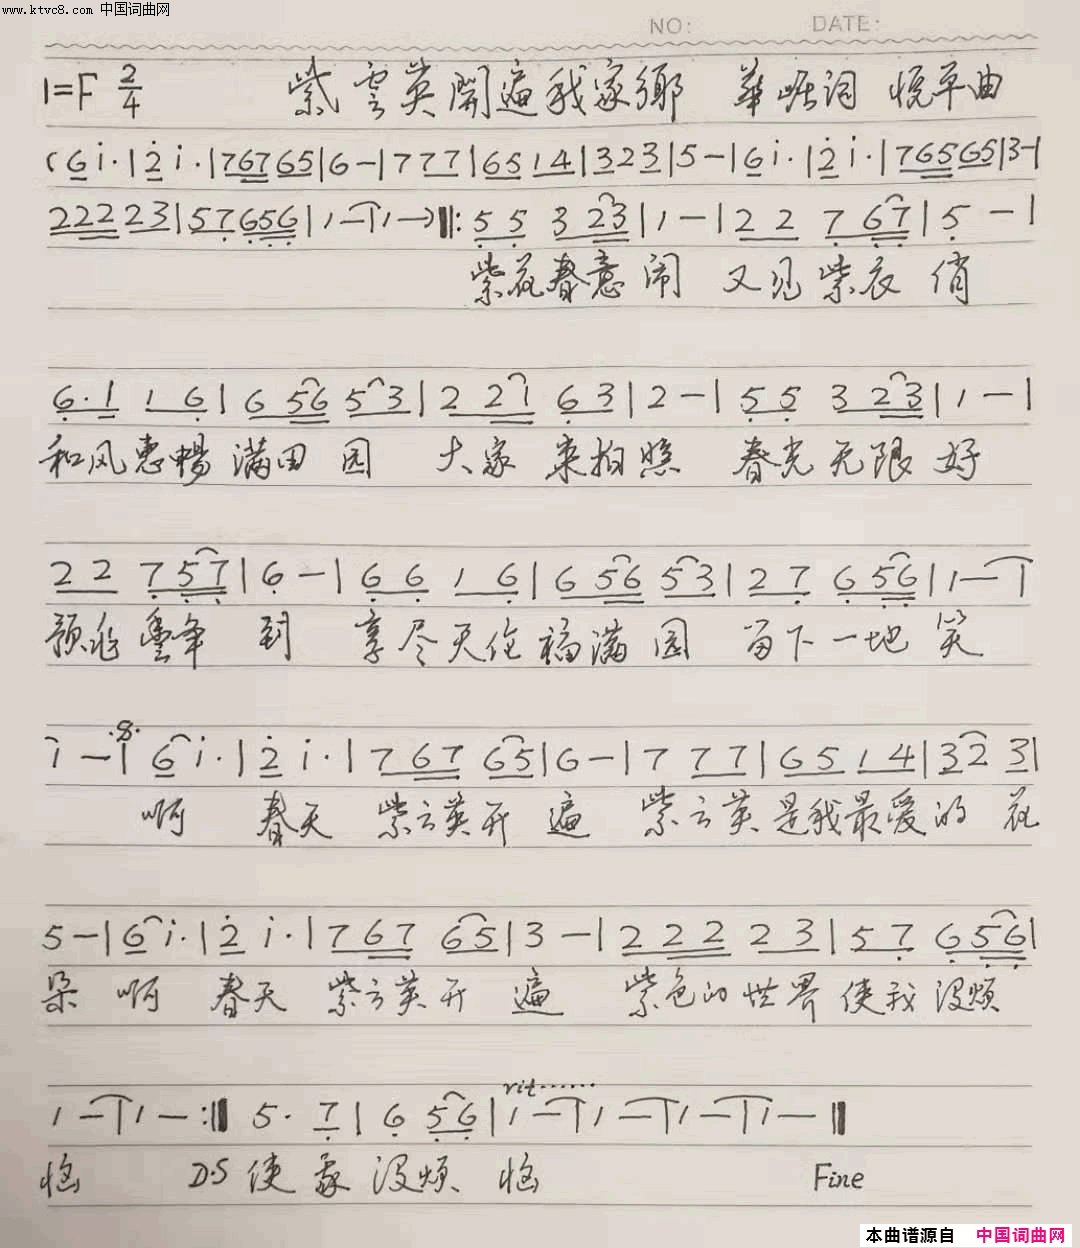 www.ktvc8.com 中国词曲网
NO: DATE:
1=F 2/4 紫雲英開遍我家鄉 華山厓词 悦平曲
(6 i·|2 i·|7 67 65|6-|7 77|65 14|3 2 3|5-|6 i·|2 i·|7 65 65|3-|
2 22 23|57 656|1-|1-)‖: 5 5 3 23|1-|2 2 7 67|5-|
紫花春意闹 又见紫衣俏
6·1 1 6|6 56 53|2 21 63|2-|5 5 3 23|1-|
和风惠暢满田园 大家来拍照 春光无限好
2 2 7 57|6-|6 6 1 6|6 56 53|27 656|1-|
预兆豐年到 享尽天伦福满园 留下一地笑
i-|6 i·|2 i·|7 67 65|6-|7 7 7|65 14|32 3|
啊 春天 紫云英开遍 紫云英是我最爱的花
5-|6 i·|2 i·|7 67 65|3-|2 22 23|5 7 656|
朵 啊 春天 紫云英开遍 紫色的世界使我没烦
rit······
1-|1-:‖ 5· 7|6 56|1-|1-|1-|1-‖
恼 D.S 使我没烦恼 Fine
本曲谱源自 中国词曲网